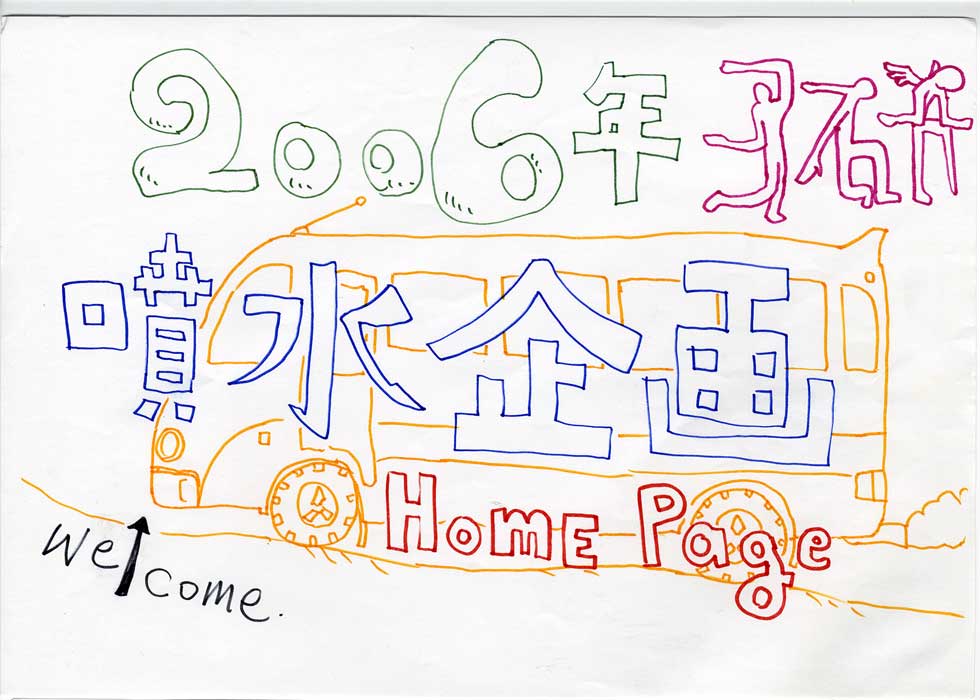 2006年
噴水企画
Home Page
Welcome.